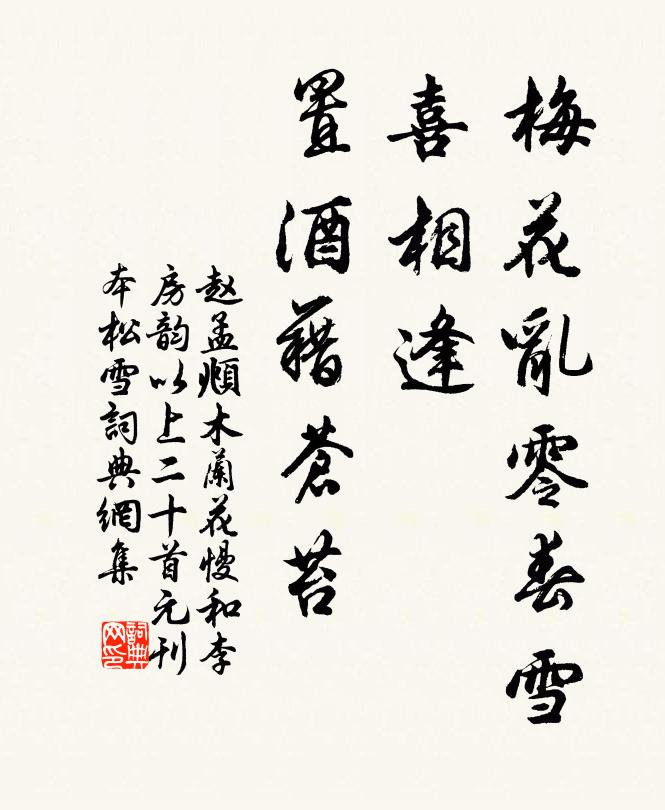 梅花亂零春雪
喜相逢
置酒藉蒼苔
赵孟頫木蘭花慢和李
房韵以上二十首元刊
本松雪詞典網集
詞典網印